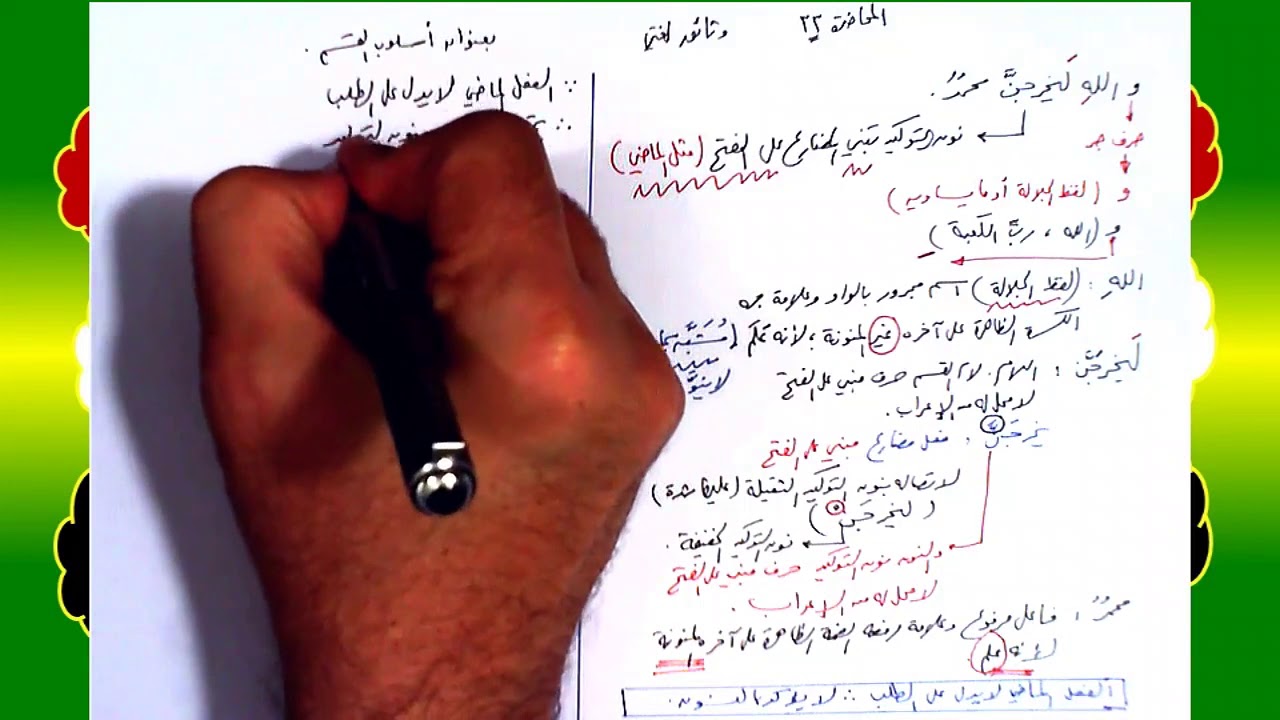 المحاضرة ٢٢
بعنوان أسلوب القسم .
و اللهِ لَيَخرجَنَّ محمدٌ .
حرف جر
نون التوكيد تبني المضارع على الفتح (مثل الماضي)
و (لفظ الجلالة أو ما يساويه)
و (الله ، ربِّ الكعبة)
اللهِ : (لفظ الجلالة) اسم مجرور بالواو وعلامة جره
الكسرة الظاهرة على آخره غير المنونة ؛ لأنه علم
لا ينوّن
لَيَخرجَنَّ : اللام . لام القسم حرف مبني على الفتح
لا محل له من الإعراب .
يخرجَنَّ : فعل مضارع مبني على الفتح
لاتصاله بنون التوكيد الثقيلة (عليها شدة)
(ليخرجَنْ)
نون التوكيد الخفيفة .
والنون نون التوكيد حرف مبني على الفتح
لا محل له من الإعراب .
محمدٌ : فاعل مرفوع وعلامة رفعه الضمة الظاهرة على آخره المنونة
لأنه علم
الفعل الماضي لا يدل على الطلب ∴ لا يؤكد بالنون .
∵ الفعل الماضي لا يدل على الطلب
∴